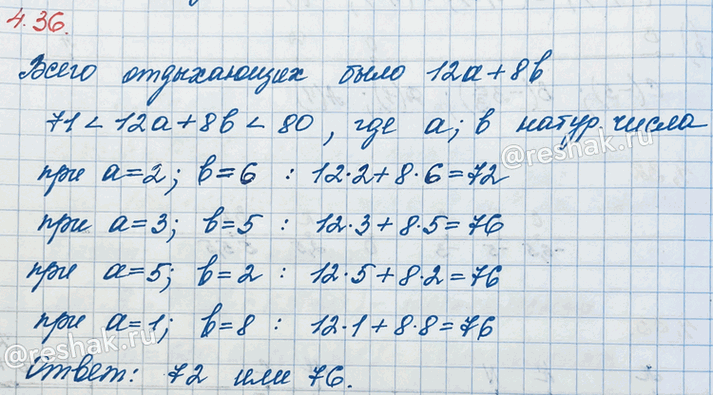 4.36.
Всего отдыхающих было 12a+8b
71 < 12a+8b < 80, где a; b натур. числа
@reshak.ru
при a=2; b=6 : 12·2+8·6=72
при a=3; b=5 : 12·3+8·5=76
при a=5; b=2 : 12·5+8·2=76
при a=1; b=8 : 12·1+8·8=76
@reshak.ru
Ответ: 72 или 76.